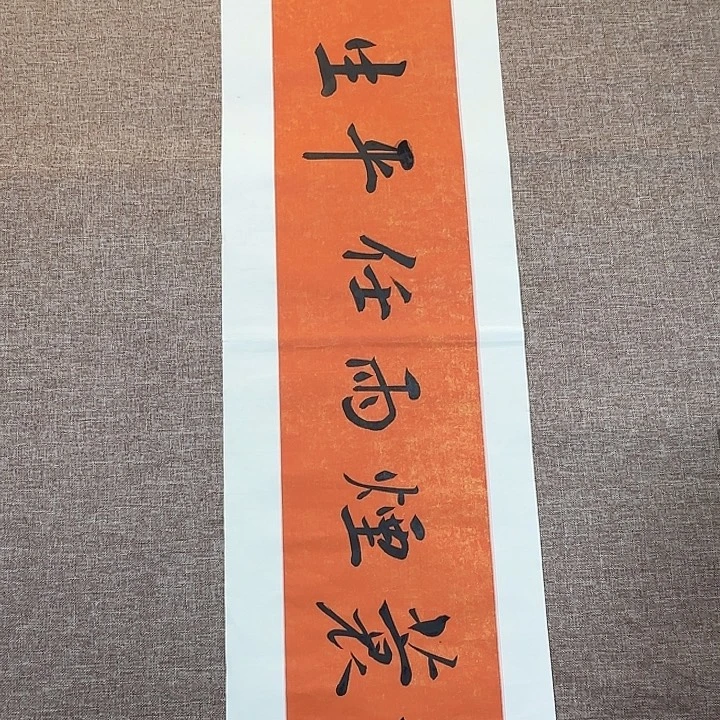 蓑煙雨任平生